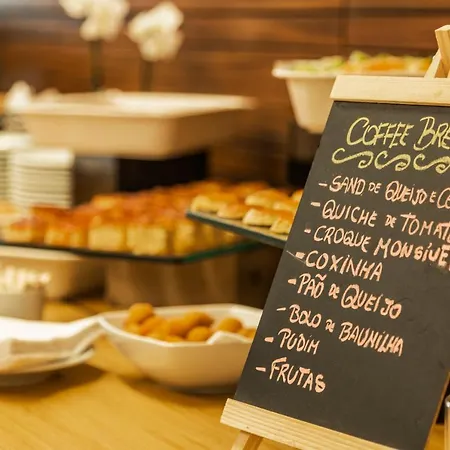 COFFEE BRE
- SAND DE QUEIJO E C
- QUICHE DE TOMAT
- CROQUE MONSIVE
- COXINHA
- PÃO DE QUEIJO
- BOLO DE BAUNILHA
- PUDIM
- FRUTAS